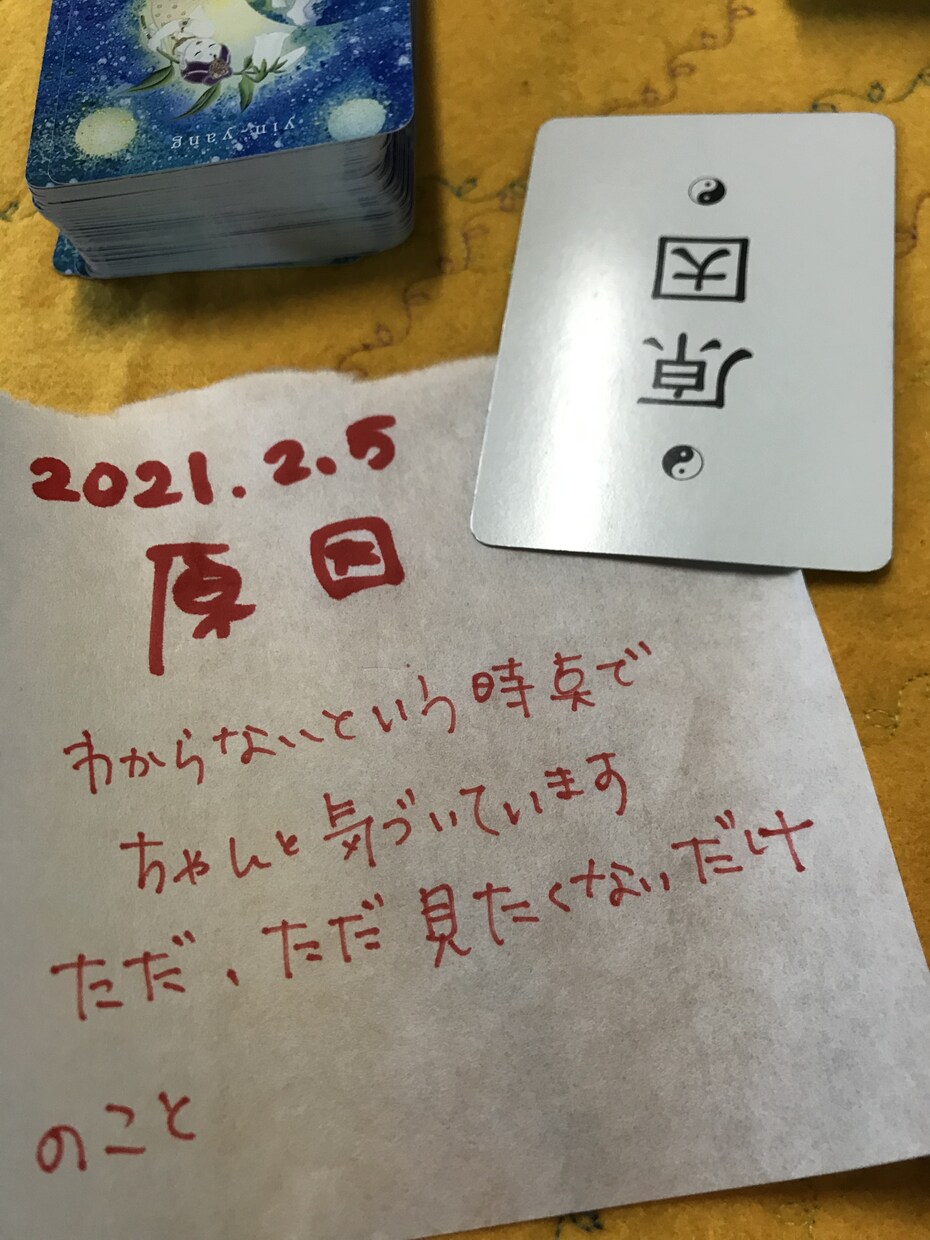 yin-yang
原因
2021.2.5
原因
わからないという時点で
ちゃんと気づいています
ただ、ただ見たくないだけ
のこと